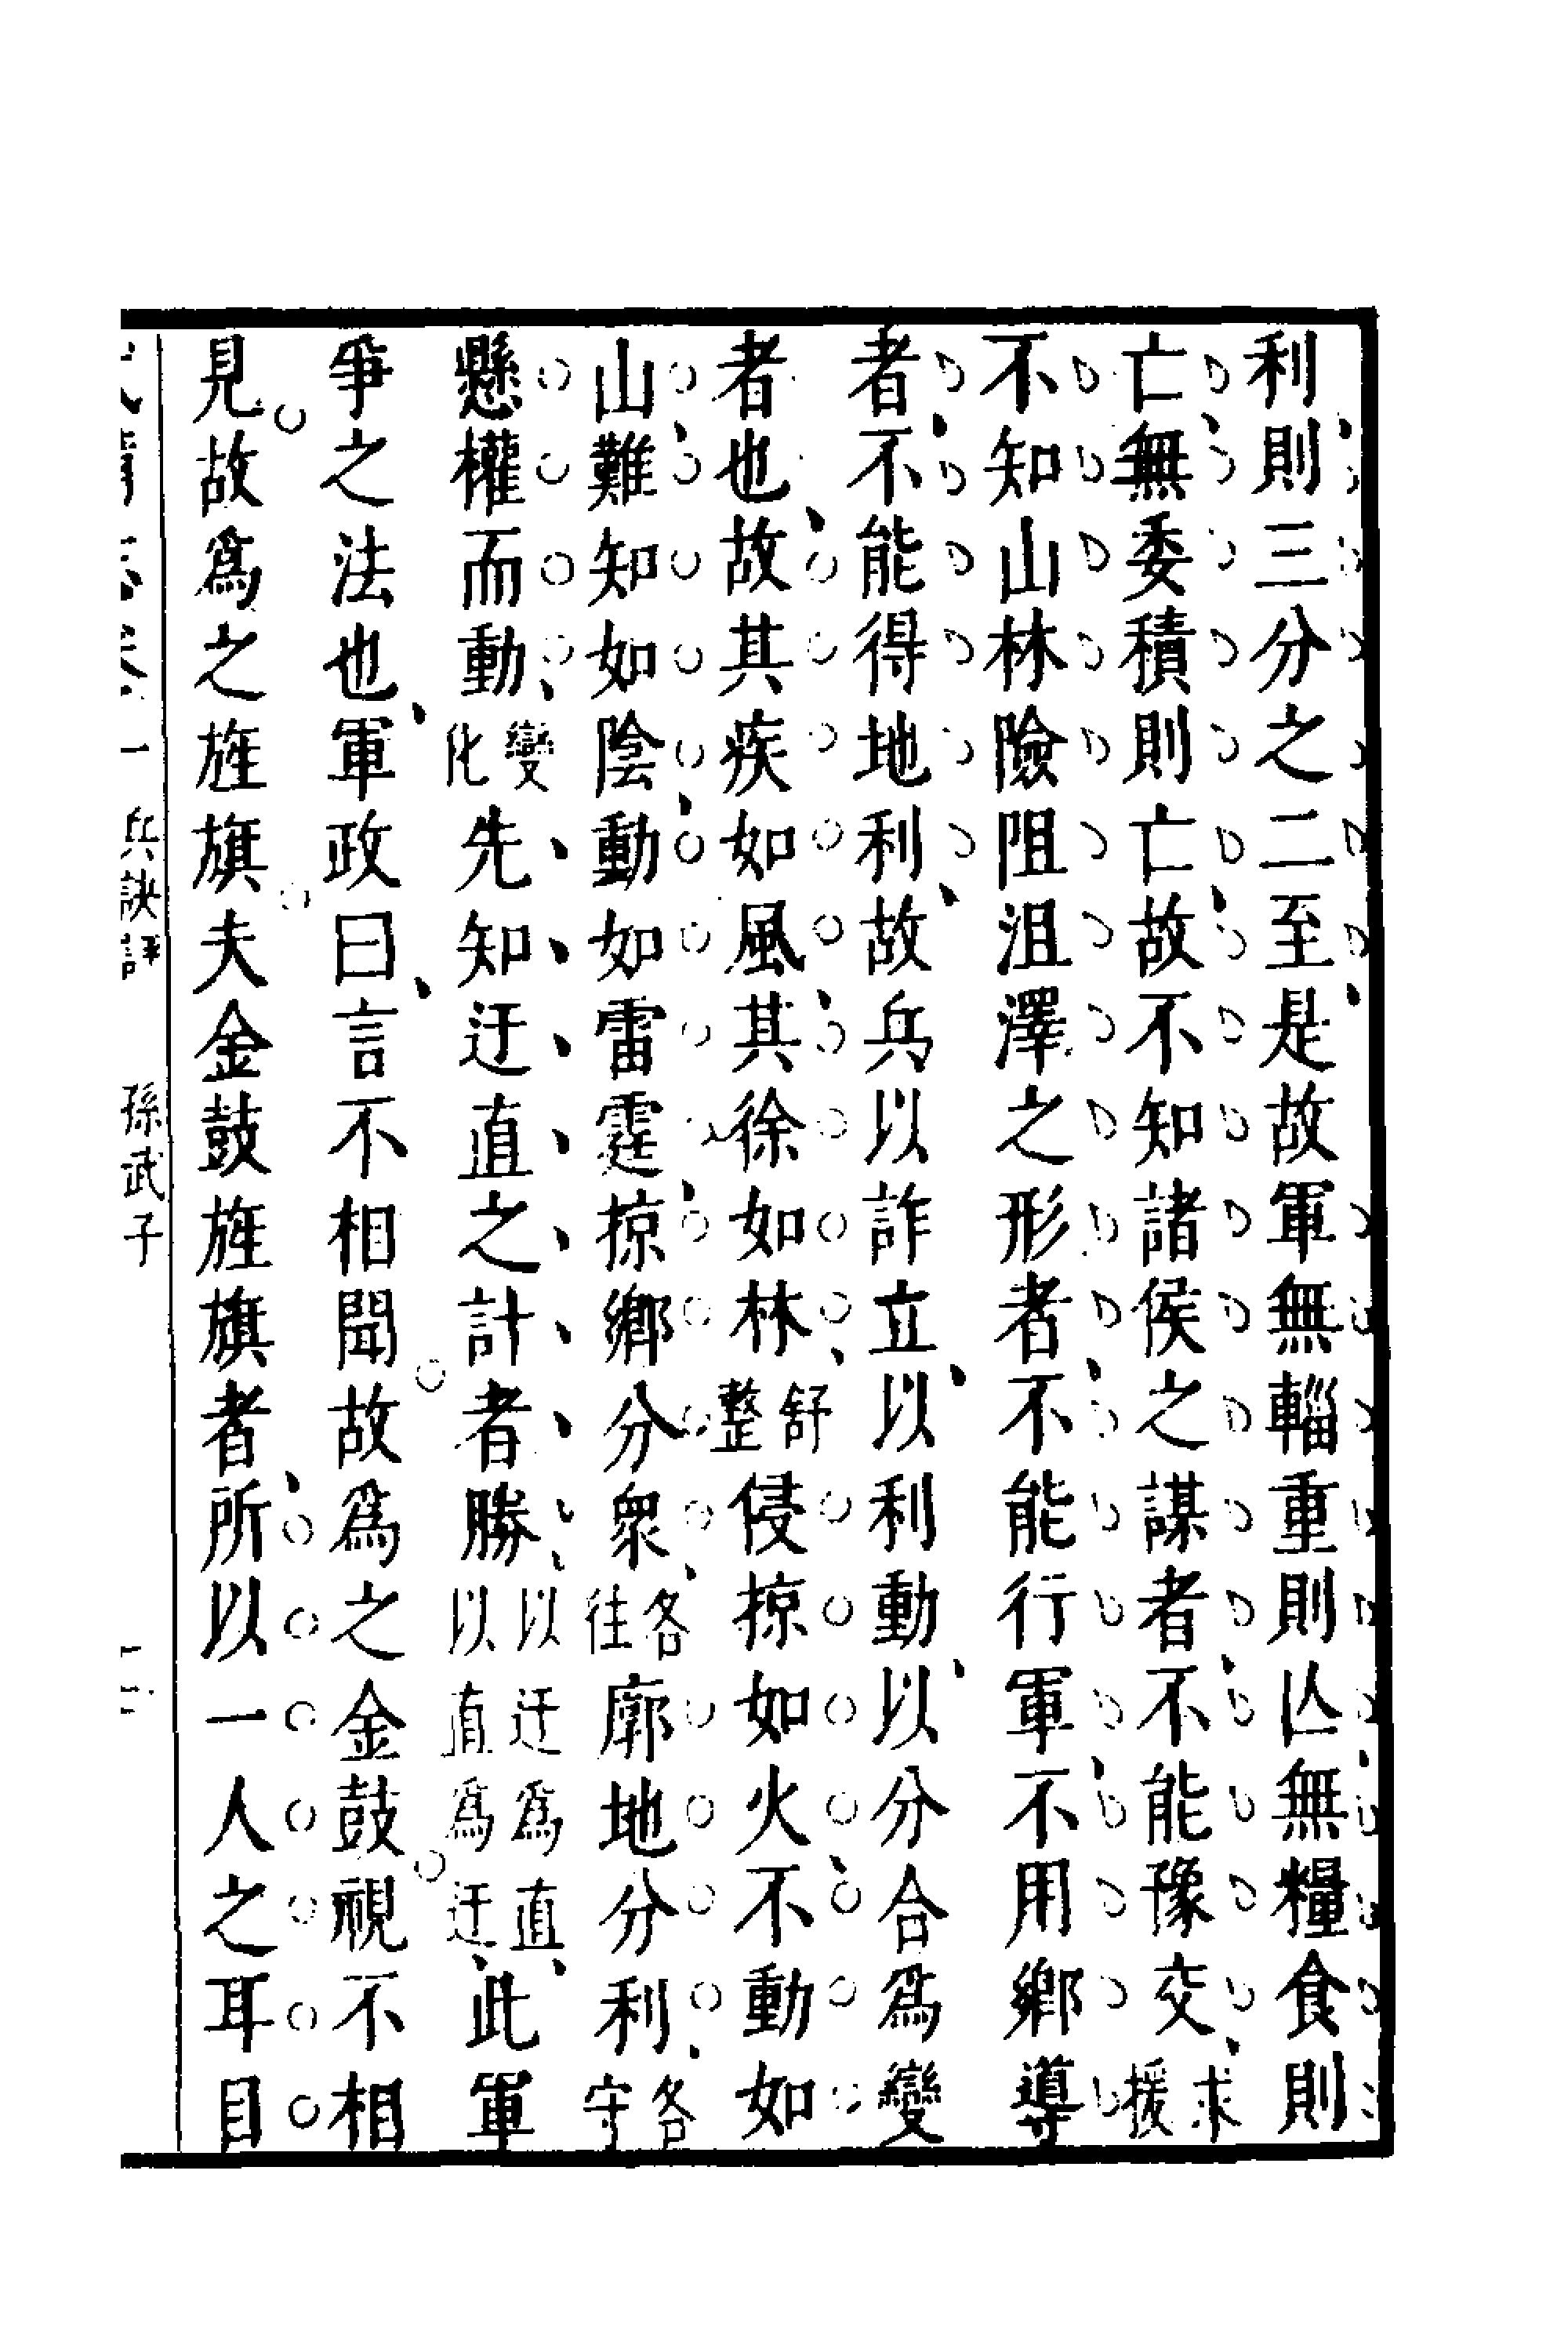 利則三分之二至是故軍無輜重則亾無糧食則
亡無委積則亡故不知諸侯之謀者不能豫交求援
不知山林險阻沮澤之形者不能行軍不用鄉導
者不能得地利故兵以詐立以利動以分合爲變
者也故其疾如風其徐如林舒整侵掠如火不動如
山難知如陰動如雷霆掠鄉分衆各往廓地分利各守
懸權而動變化先知迂直之計者勝以迂爲直以直爲迂此軍
爭之法也軍政曰言不相聞故爲之金鼓視不相
見故爲之旌旗夫金鼓旌旗者所以一人之耳目
一 兵訣評 孫武子